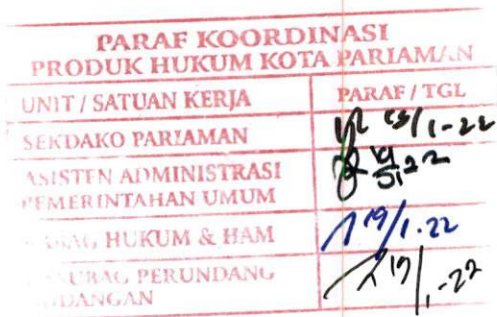 PARAF KOORDINASI
PRODUK HUKUM KOTA PARIAMAN
UNIT / SATUAN KERJA PARAF / TGL
SEKDAKO PARIAMAN /1-22
ASISTEN ADMINISTRASI
PEMERINTAHAN UMUM
HUKUM & HAM 19/1.22
PERUNDANG 19/1-22